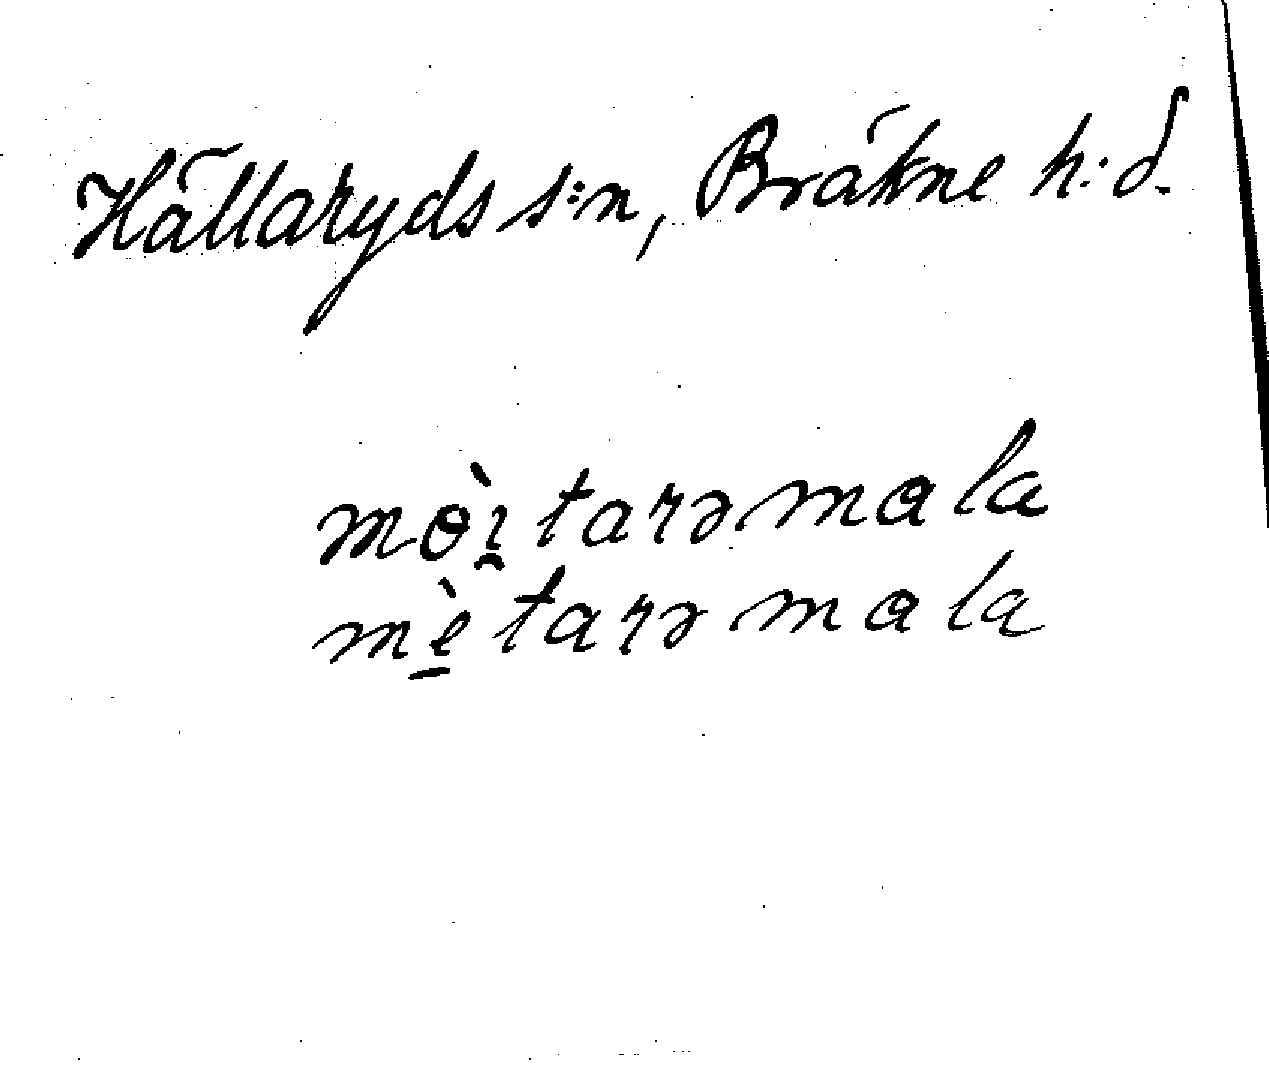 Hällaryds s:n, Bräkne h:d.
mɵ̀ı̯tarəmala
mè̱tarəmala